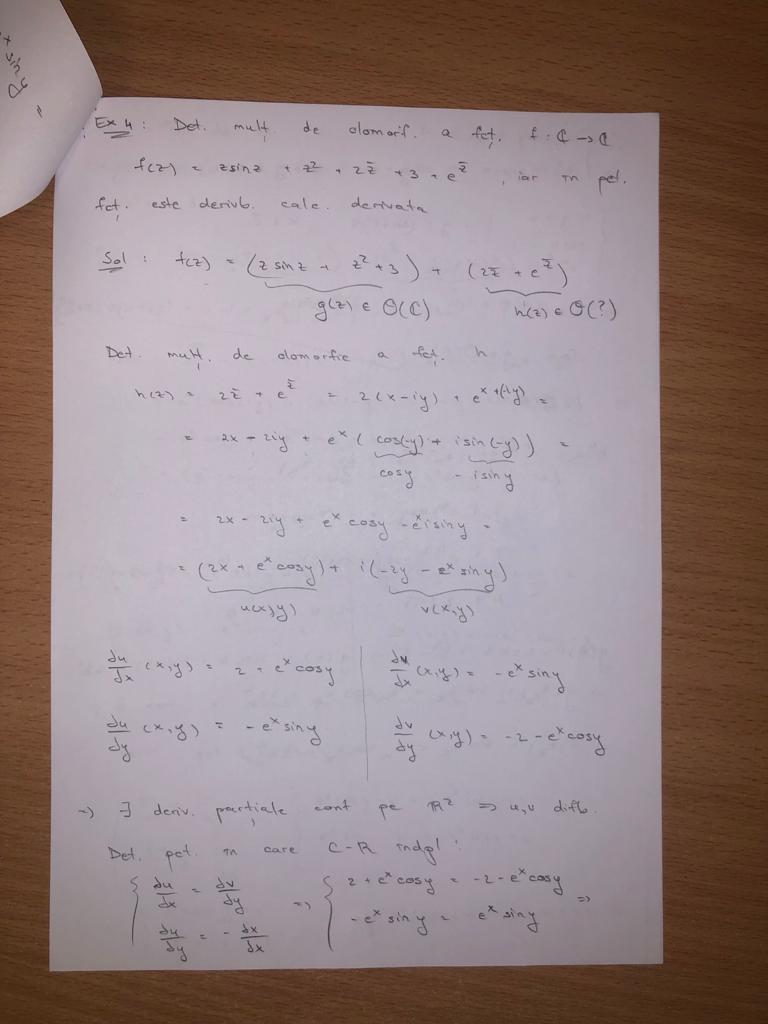 x sin y =
Ex 4 : Det. mulț. de olomorf. a fcț. f : ℂ → ℂ
f(z) = z sin z + z² + 2z̄ + 3 + e^z̄ , iar în pct.
fcț. este derivb. calc. derivata
Sol : f(z) = (z sin z + z² + 3) + (2z̄ + e^z̄)
g(z) ∈ O(ℂ) h(z) ∈ O(?)
Det. mulț. de olomorfie a fcț. h
h(z) = 2z̄ + e^z̄ = 2(x-iy) + e^x+(-iy) =
= 2x - 2iy + e^x ( cos(-y) + i sin(-y) ) =
cos y - i sin y
= 2x - 2iy + e^x cos y - e^x i sin y =
= (2x + e^x cos y) + i(-2y - e^x sin y)
u(x,y) v(x,y)
du/dx (x,y) = 2 + e^x cos y dv/dx (x,y) = -e^x sin y
du/dy (x,y) = -e^x sin y dv/dy (x,y) = -2 - e^x cos y
=> ∃ deriv. parțiale cont pe ℝ² => u,v difb.
Det. pct. în care C-R îndpl :
{ du/dx = dv/dy => { 2 + e^x cos y = -2 - e^x cos y =>
du/dy = - dx/dx -e^x sin y = e^x sin y